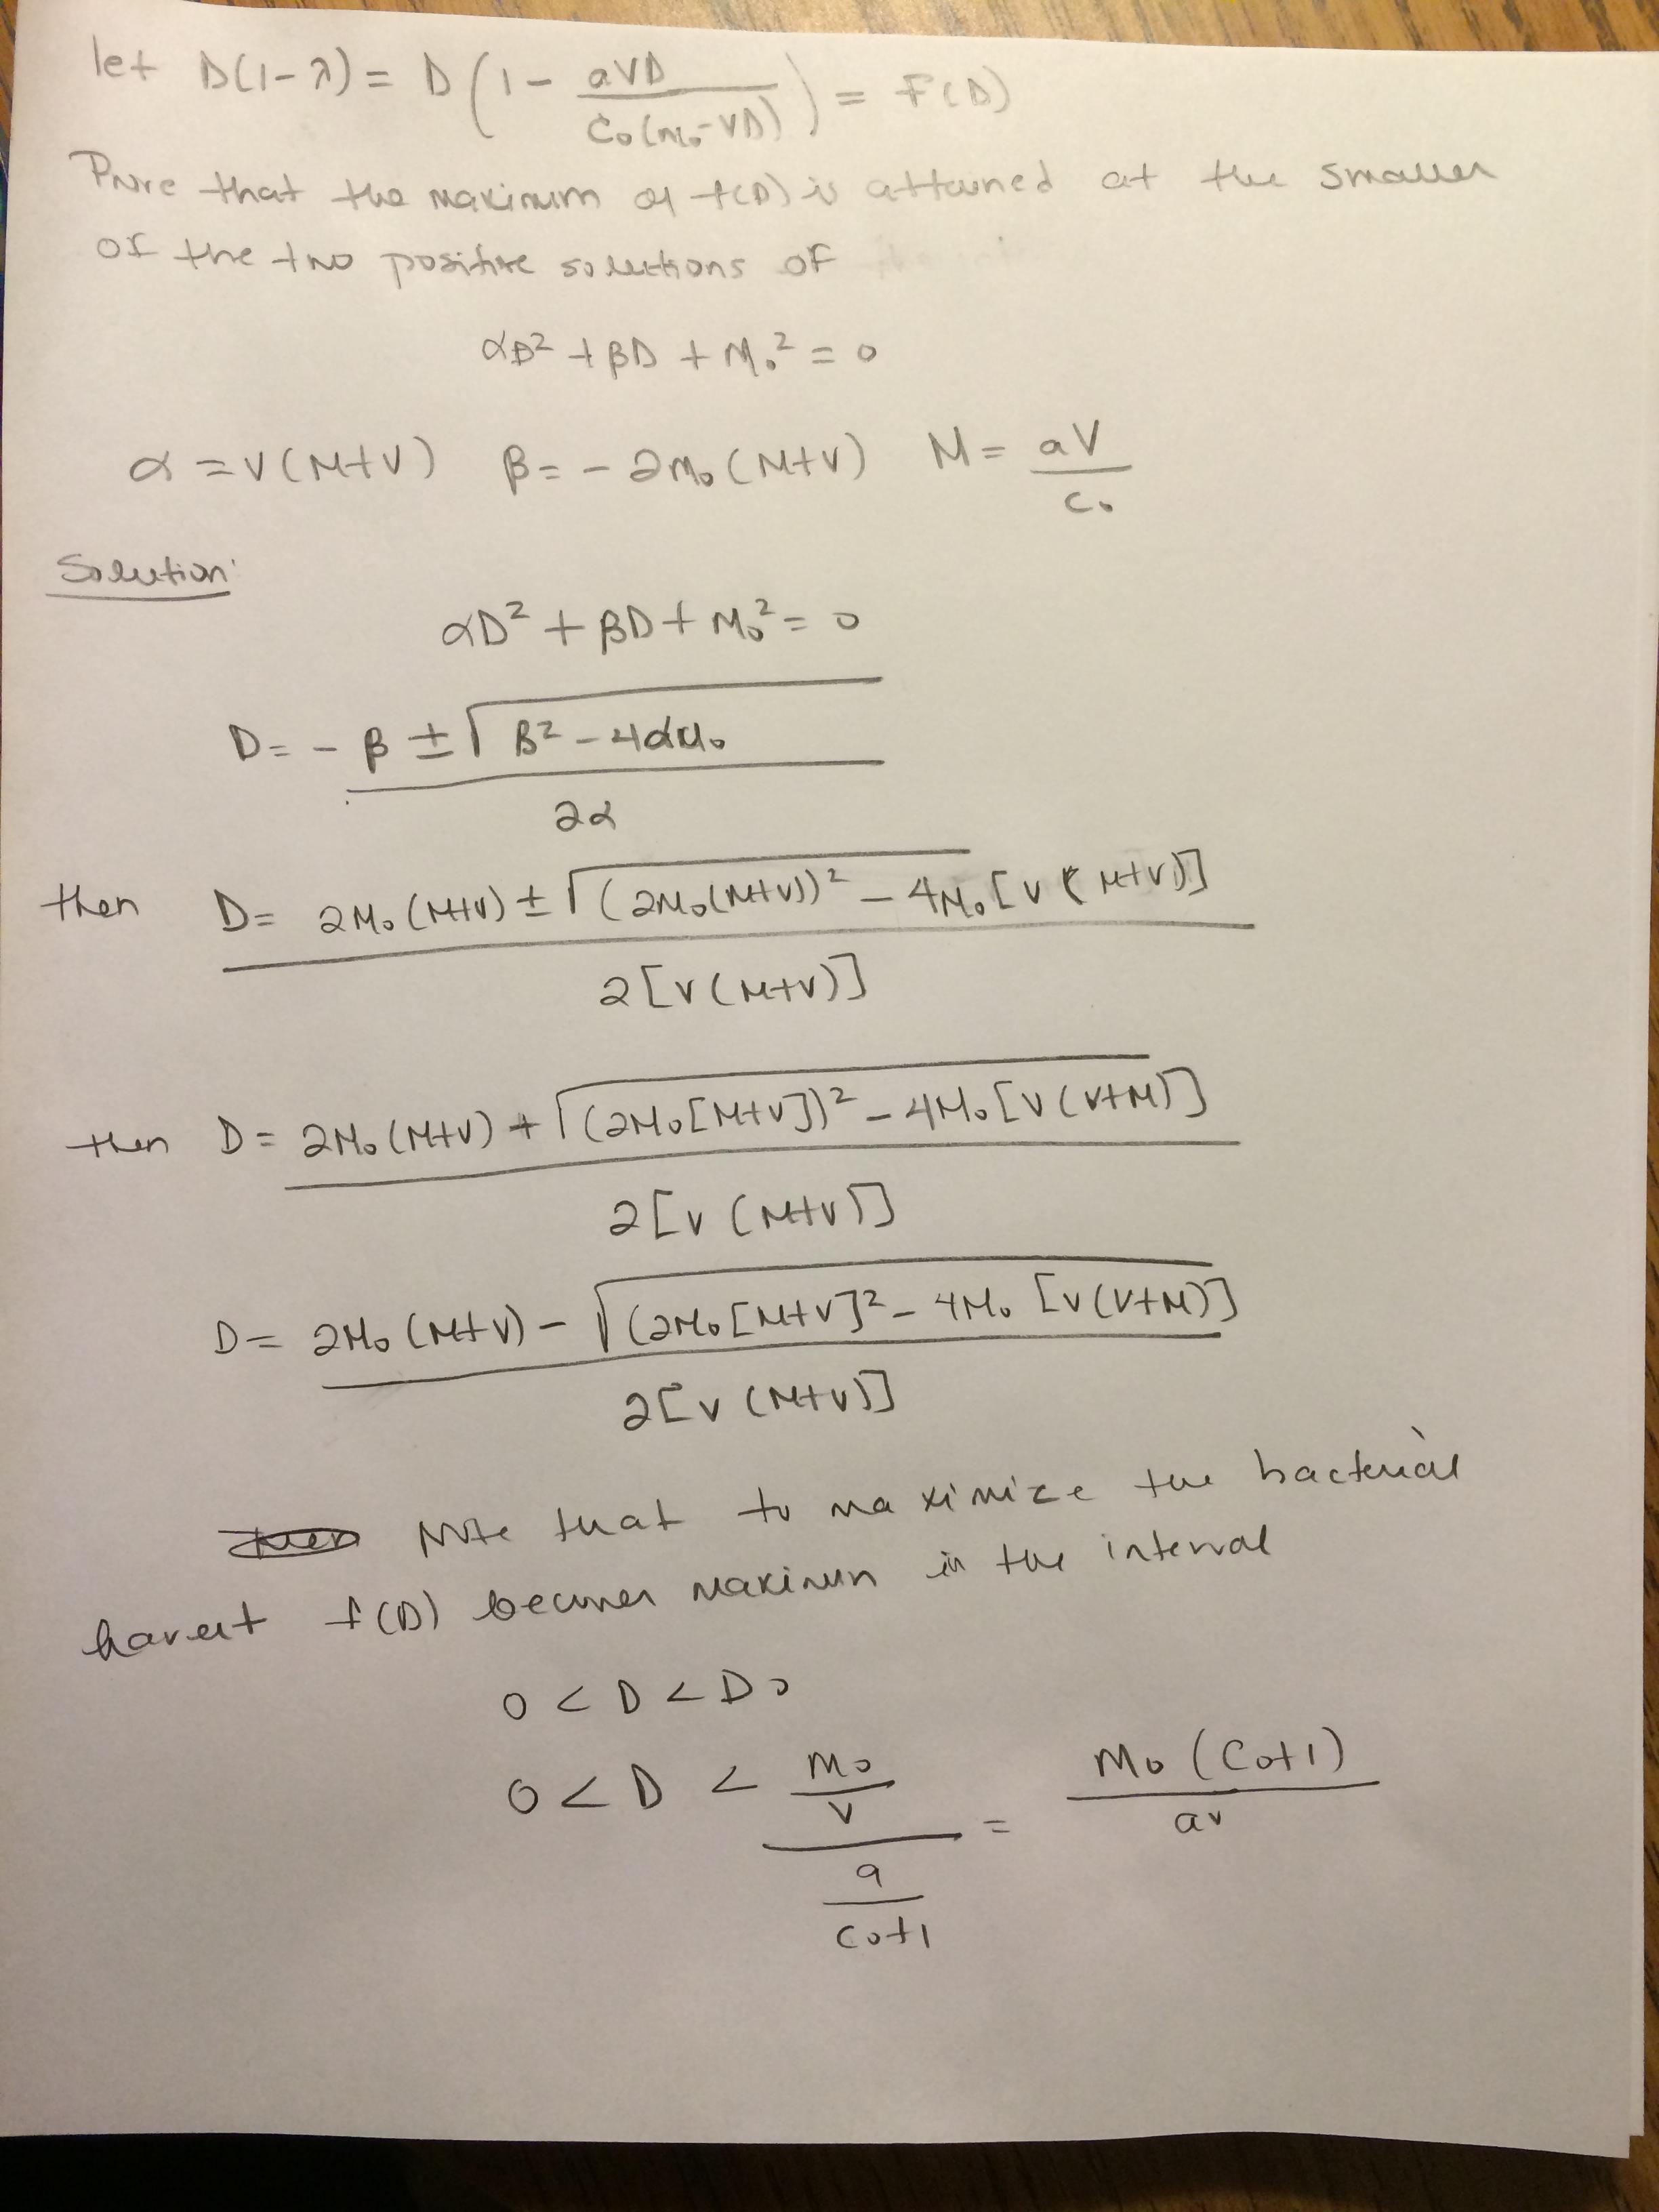 let D(1-λ) = D(1 - aVD / C₀(m₀-VD)) = F(D)
Prove that the maximum of f(D) is attained at the smaller
of the two positive solutions of
αD² + βD + M₀² = 0
α = V(M+V) β = -2m₀(M+V) M = aV / C₀
Solution:
αD² + βD + M₀² = 0
D = -β ± √(β² - 4αM₀) / 2α
then D = 2M₀(M+V) ± √((2M₀(M+V))² - 4M₀[V(M+V)]) / 2[V(M+V)]
then D = 2M₀(M+V) + √((2M₀[M+V])² - 4M₀[V(V+M)]) / 2[V(M+V)]
D = 2M₀(M+V) - √((2M₀[M+V]² - 4M₀[V(V+M)]) / 2[V(M+V)]
Note that to maximize the bacterial
harvest f(D) becomes maximum in the interval
0 < D < D₀
0 < D < m₀/V / a/C₀+1 = M₀(C₀+1) / av